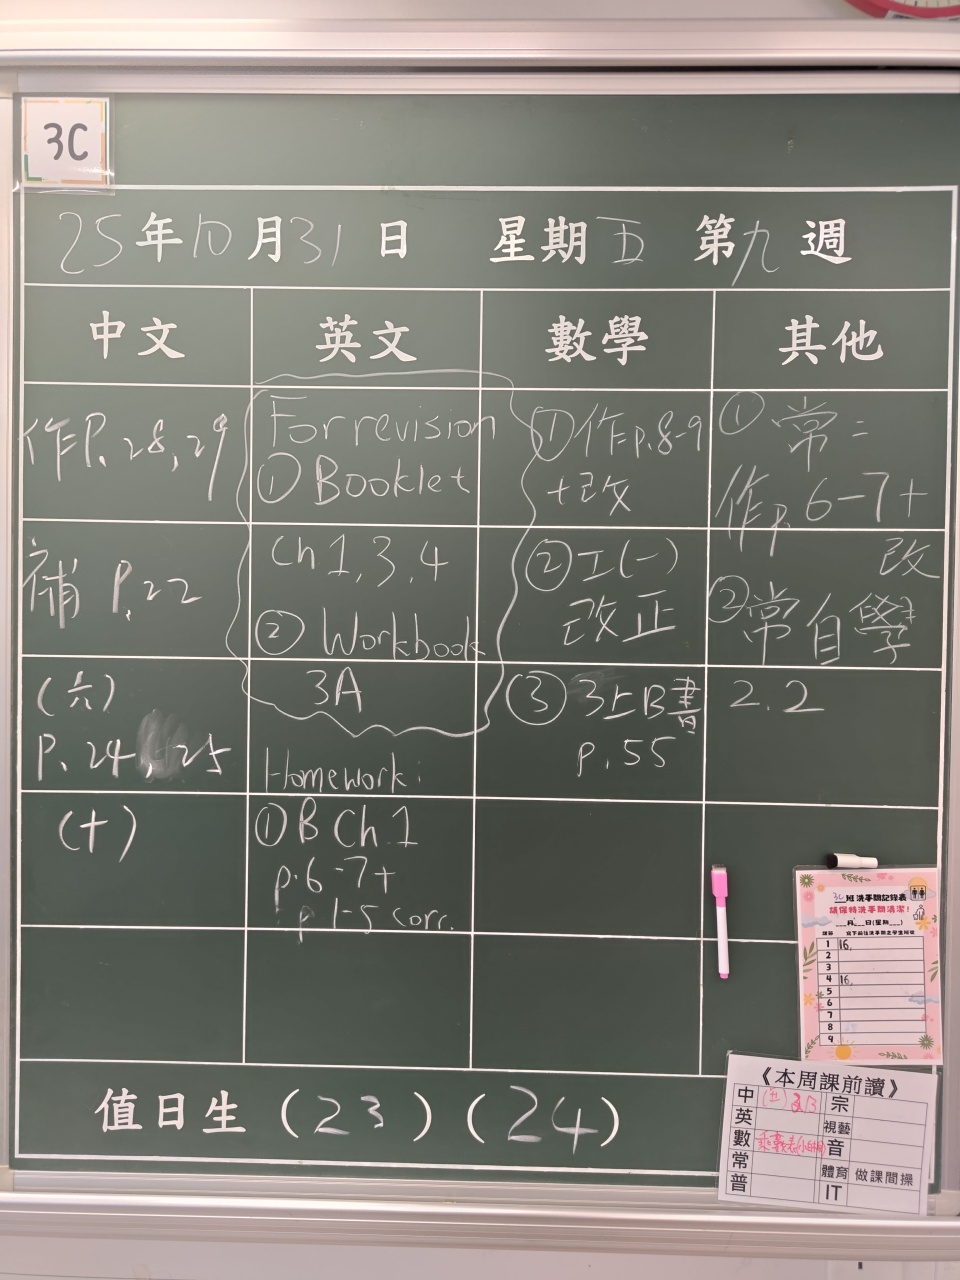 3C
25年10月31日 星期五 第九週
中文 英文 數學 其他
作P.28,29
補 P.22
(六)
P.24,25
(十)
For revision
① Booklet
Ch 1,3,4
② Workbook
3A
Homework:
① B Ch.1
p.6-7+
p 1-5 corr.
①作p.8-9
+改
②工(一)
改正
③3上B書
p.55
①常:
作p.6-7+
改
②常自學
2.2
3C班洗手間記錄表
請保持洗手間清潔!
___月___日(星期___)
1 16,
2
3
4 16,
5
6
7
8
9
值日生(23)(24)
《本周課前讀》
中 (五) 宗
英 視藝
數 音
常 體育 做課間操
普 IT